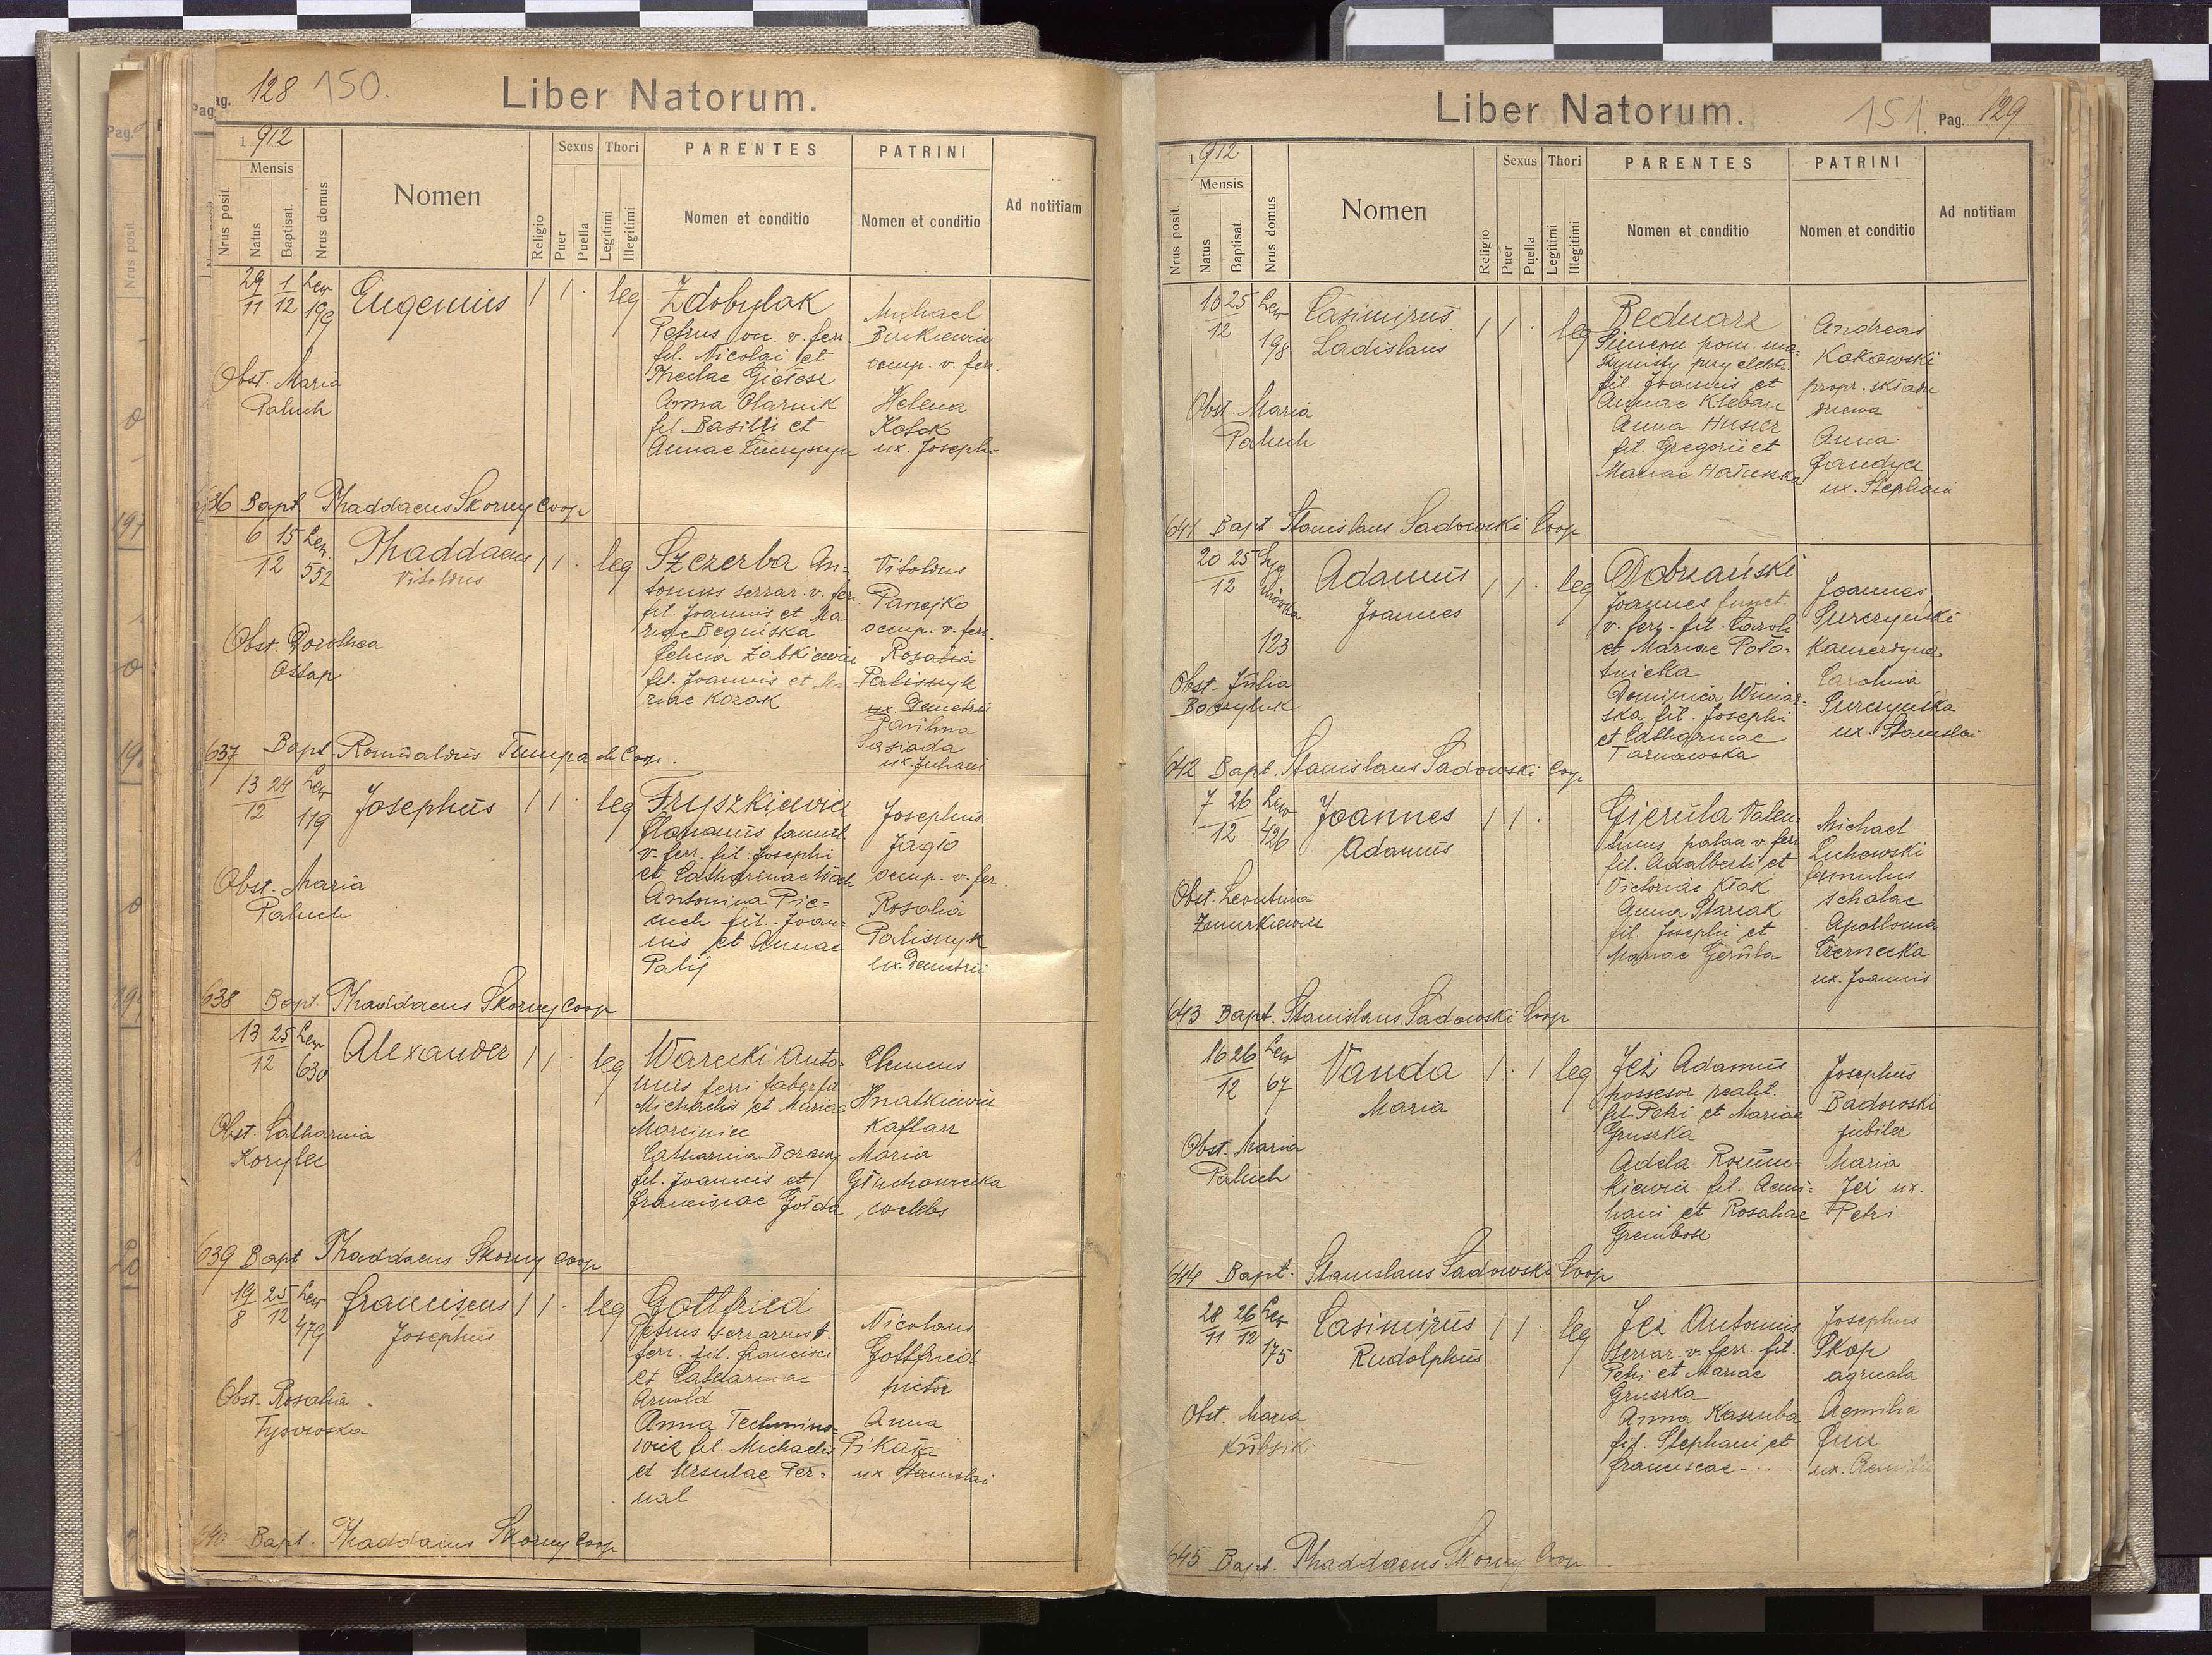 Pag. 128 150.
Liber Natorum.
1912
Mensis
Nrus posit.
Natus
Baptisat.
Nrus domus
Nomen
Religio
Sexus
Puer
Puella
Thori
Legitimi
Illegitimi
PARENTES
Nomen et conditio
PATRINI
Nomen et conditio
Ad notitiam
29 1 Lew
11 12 199
Eugenius
1 1 · leg
Zdobylak
Petrus v. ferr.
fil. Nicolai et
Theclae
Anna Olarnik
fil. Basilii et
Annae
Michael
occup. v. ferr.
Helena
Kosok
ux. Josephi
Obst. Maria
Paluch
636 Bapt. Thaddaeus Skorny Coop
6 15 Lew.
12 552
Thaddaeus
Vitoldus
1 1 · leg
Szczerba An-
tonius serrar. v. ferr.
fil. Joannis et Ma
riae Beguiska
Felicia Ziabkiewicz
fil. Joannis et Ma
riae Kozak
Vitoldus
Panejko
occup. v. ferr.
Rosalia
Palisnyk
ux. Demetrii
Paulina
Sasiada
ux. Juliani
Obst. Dorothea
Ostap
637 Bapt. Romualdus Coop.
13 24 Lew
12 119
Josephus
1 1 · leg
Fryszkiewicz
Florianus famul.
v. ferr. fil. Josephi
et Catharinae Wach
Antonina Pie-
cuch fil. Joan-
nis et Annae
Palij
Josephus
Jagło
occup. v. fer.
Rosalia
Palisnyk
ux. Demetrii
Obst. Maria
Paluch
638 Bapt. Thaddaeus Skorny Coop
13 25 Lew
12 630
Alexander
1 1 · leg
Warecki Anto-
nius ferri faber fil.
Michaelis et Mariae
Marciniec
Catharina
fil. Joannis et
Franciscae
Clemens
Hnatkiewicz
Kaflarz
Maria
coelebs
Obst. Catharina
Korylec
639 Bapt Thaddaeus Skorny Coop
19 25 Lew
8 12 479
Franciscus
Josephus
1 1 · leg
Gottfried
Petrus serrarius v.
ferr. fil. Francisci
et Catharinae
Arnold
Anna Techmino-
wicz fil. Michaelis
et Ursulae Per-
nal
Nicolaus
Gottfried
pictor
Anna
Pikała
ux Stanislai
Obst. Rosalia
Tysowska
640 Bapt. Thaddaeus Skorny Coop
Liber Natorum.
151. Pag. 129
1912
Mensis
Nrus posit.
Natus
Baptisat.
Nrus domus
Nomen
Religio
Sexus
Puer
Puella
Thori
Legitimi
Illegitimi
PARENTES
Nomen et conditio
PATRINI
Nomen et conditio
Ad notitiam
10 25 Lew
12 198
Casimirus
Ladislaus
1 1 · leg
Bednarz
Simeon pom. ma-
szynisty przy elektr.
fil. Joannis et
Annae Kleban
Anna Husier
fil. Gregorii et
Mariae Hałuszka
Andreas
Kokowski
propr. składu
drzewa
Anna
ux. Stephani
Obst. Maria
Paluch
641 Bapt. Stanislaus Sadowski Coop
20 25
12
123
Adamus
Joannes
1 1 · leg
Dobrzański
Joannes funct.
v. ferr. fil. Caroli
et Mariae Poło-
tnicka
Dominica Winiar-
ska fil. Josephi
et Catharinae
Tarnawska
Joannes
Surczyński
Kamerdyner
Carolina
Surczyńska
ux. Stanislai
Obst. Julia
642 Bapt. Stanislaus Sadowski Coop
7 26 Lew
12 426
Joannes
Adamus
1 1 ·
Gierula Valen-
tinus palacz v. ferr
fil. Adalberti et
Victorias Kłak
Anna Stariak
fil. Josephi et
Mariae Gerula
Michael
Lichowski
famulus
scholae
Apollonia
Czernecka
ux. Joannis
Obst. Leontina
Zmurkiewicz
643 Bapt. Stanislaus Sadowski Coop
16 26 Lew
12 67
Vanda
Maria
1 · 1 leg
Jez Adamus
possesor realit.
fil. Petri et Mariae
Gruszka
Adela Rozum-
kiewicz fil. Aemi-
liani et Rosaliae
Grembosz
Josephus
Badowski
jubiler
Maria
Jez ux.
Petri
Obst. Maria
Paluch
644 Bapt. Stanislaus Sadowski Coop
28 26 Lew
11 12 175
Casimirus
Rudolphus
1 1 · leg
Jez Antonius
serrar. v. ferr. fil.
Petri et Mariae
Gruszka
Anna Kaszuba
fil. Stephani et
Franciscae - . . .
Josephus
Skop
agricola
Aemilia
ux. Aemilii
Obst. Maria
Kubsik
645 Bapt. Thaddaeus Skorny Coop